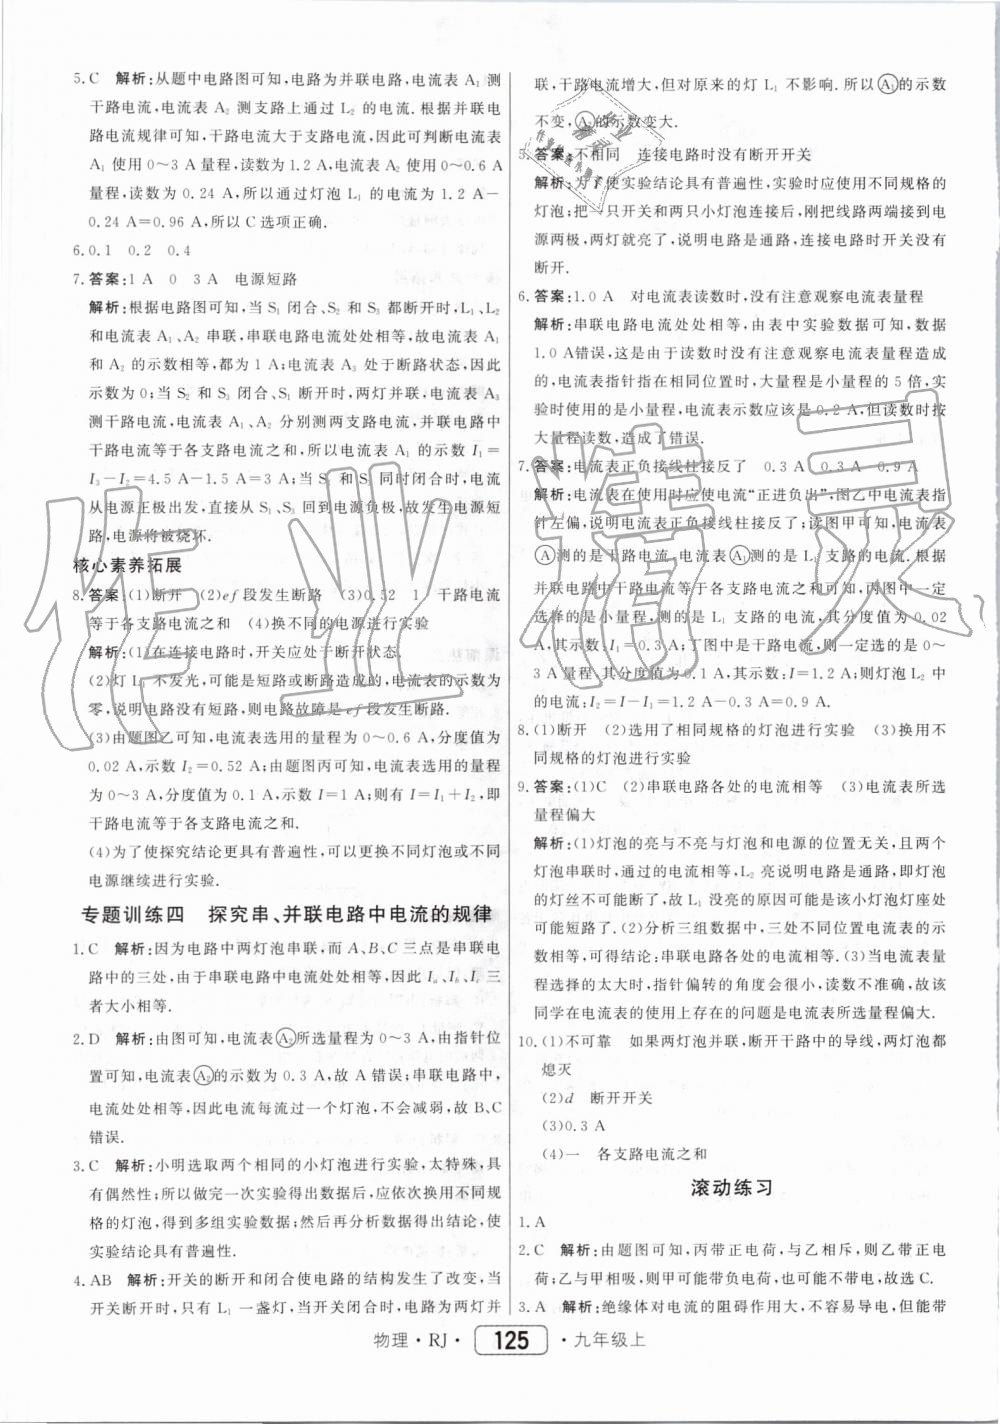 5.C 解析:从题中电路图可知,电路为并联电路,电流表 A₁ 测
干路电流,电流表 A₂ 测支路上通过 L₂ 的电流.根据并联电
路电流规律可知,干路电流大于支路电流,因此可判断电流表
A₁ 使用 0～3 A 量程,读数为 1.2 A,电流表 A₂ 使用 0～0.6 A
量程,读数为 0.24 A,所以通过灯泡 L₁ 的电流为 1.2 A－
0.24 A＝0.96 A,所以 C 选项正确.
6.0.1 0.2 0.4
7.答案:1 A 0 3 A 电源短路
解析:根据电路图可知,当 S₁ 闭合、S₂ 和 S₃ 都断开时,L₁、L₂
和电流表 A₁、A₂ 串联,串联电路电流处处相等,故电流表 A₁
和 A₂ 的示数相等,都为 1 A;电流表 A₃ 处于断路状态,因此
示数为 0;当 S₂ 和 S₃ 闭合、S₁ 断开时,两灯并联,电流表 A₃
测干路电流,电流表 A₂、A₁ 分别测两支路电流,并联电路中
干路电流等于各支路电流之和,所以电流表 A₁ 的示数 I₁＝
I₃－I₂＝4.5 A－1.5 A＝3 A;当 S₁ 和 S₃ 同时闭合时,电流
从电源正极出发,直接从 S₁、S₃ 回到电源负极,故发生电源短
路,电源将被烧坏.
核心素养拓展
8.答案:(1)断开 (2)ef 段发生断路 (3)0.52 1 干路电流
等于各支路电流之和 (4)换不同的电源进行实验
解析:(1)在连接电路时,开关应处于断开状态.
(2)灯 L₁ 不发光,可能是短路或断路造成的,电流表的示数为
零,说明电路没有短路,则电路故障是 ef 段发生断路.
(3)由题图乙可知,电流表选用的量程为 0～0.6 A,分度值为
0.02 A,示数 I₂＝0.52 A;由题图丙可知,电流表选用的量程
为 0～3 A,分度值为 0.1 A,示数 I＝1 A;则有 I＝I₁＋I₂,即
干路电流等于各支路电流之和.
(4)为了使探究结论更具有普遍性,可以更换不同灯泡或不同
电源继续进行实验.
专题训练四 探究串、并联电路中电流的规律
1.C 解析:因为电路中两灯泡串联,而 A、B、C 三点是串联电
路中的三处,由于串联电路中电流处处相等,因此 Iₐ、I_b、I_c 三
者大小相等.
2.D 解析:由图可知,电流表Ⓐ₂所选量程为 0～3 A,由指针位
置可知,电流表Ⓐ₂的示数为 0.3 A,故 A 错误;串联电路中,
电流处处相等,故电流每流过一个灯泡,不会减弱,故 B、C
错误.
3.C 解析:小明选取两个相同的小灯泡进行实验,太特殊,具
有偶然性;所以做完一次实验得出数据后,应依次换用不同规
格的灯泡,得到多组实验数据;然后再分析数据得出结论,使
实验结论具有普遍性.
4.AB 解析:开关的断开和闭合使电路的结构发生了改变,当
开关断开时,只有 L₁ 一盏灯,当开关闭合时,电路为两灯并
联,干路电流增大,但对原来的灯 L₁ 不影响.所以Ⓐ₁的示数
不变,Ⓐ₂的示数变大.
5.答案:不相同 连接电路时没有断开开关
解析:为了使实验结论具有普遍性,实验时应使用不同规格的
灯泡;把一只开关和两只小灯泡连接后,刚把线路两端接到电
源两极,两灯就亮了,说明电路是通路,连接电路时开关没有
断开.
6.答案:1.0 A 对电流表读数时,没有注意观察电流表量程
解析:串联电路电流处处相等,由表中实验数据可知,数据
1.0 A错误,这是由于读数时没有注意观察电流表量程造成
的,电流表指针指在相同位置时,大量程是小量程的 5 倍,实
验时使用的是小量程,电流表示数应该是 0.2 A,但读数时按
大量程读数的,造成了错误.
7.答案:电流表正负接线柱接反了 0.3 A 0.3 A 0.9 A
解析:电流表在使用时应使电流“正进负出”;图乙中电流表指
针左偏,说明电流表正负接线柱接反了;读图甲可知,电流表
Ⓐ测的是干路电流,电流表Ⓐ₁测的是 L₁ 支路的电流.根据
并联电路中干路电流等于各支路电流之和可知,丙图中一定
选择的是 0～0.6 A 量程,测的是 L₁ 支路电流,其分度值为 0.02
A,其示数:I₁＝0.3 A;丁图中是干路电流,则一定选的是 0～
3 A量程,其分度值为 0.1 A,其示数:I＝1.2 A;则灯泡 L₂ 中
的电流:I₂＝I－I₁＝1.2 A－0.3 A＝0.9 A.
8.(1)断开 (2)选用了相同规格的灯泡进行实验 (3)换用不
同规格的灯泡进行实验
9.答案:(1)C (2)串联电路各处的电流相等 (3)电流表所选
量程偏大
解析:(1)灯泡的亮与不亮与灯泡和电源的位置无关,且两个
灯泡串联时,通过的电流相等,L₂ 亮说明电路是通路,灯泡是
好的,灯丝不可能断了,故 L₁ 没亮的原因可能是该小灯泡灯座处
可能短路了.(2)分析三组数据中,三处不同位置电流表的示
数相等,可得结论:串联电路各处的电流相等.(3)当电流表量程
选择的太大时,指针偏转的角度会很小,读数不准确,故该
同学在电流表的使用上存在的问题是电流表所选量程偏大.
10.(1)不可靠 如果两灯泡并联,断开干路中的导线,两灯泡都
熄灭
(2)d 断开开关
(3)0.3 A
(4)一 各支路电流之和
滚动练习
1.A
2.C 解析:由题图可知,丙带正电荷,与乙相斥,则乙带正电
荷;乙与甲相吸,则甲可能带负电荷,也可能不带电,故选 C.
3.A 解析:绝缘体对电流的阻碍作用大,不容易导电,但能带
物理·RJ· 125 ·九年级上
作业精灵